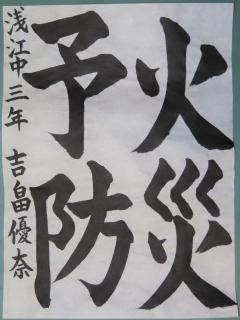 火災
予防
浅江中三年 吉畠優奈